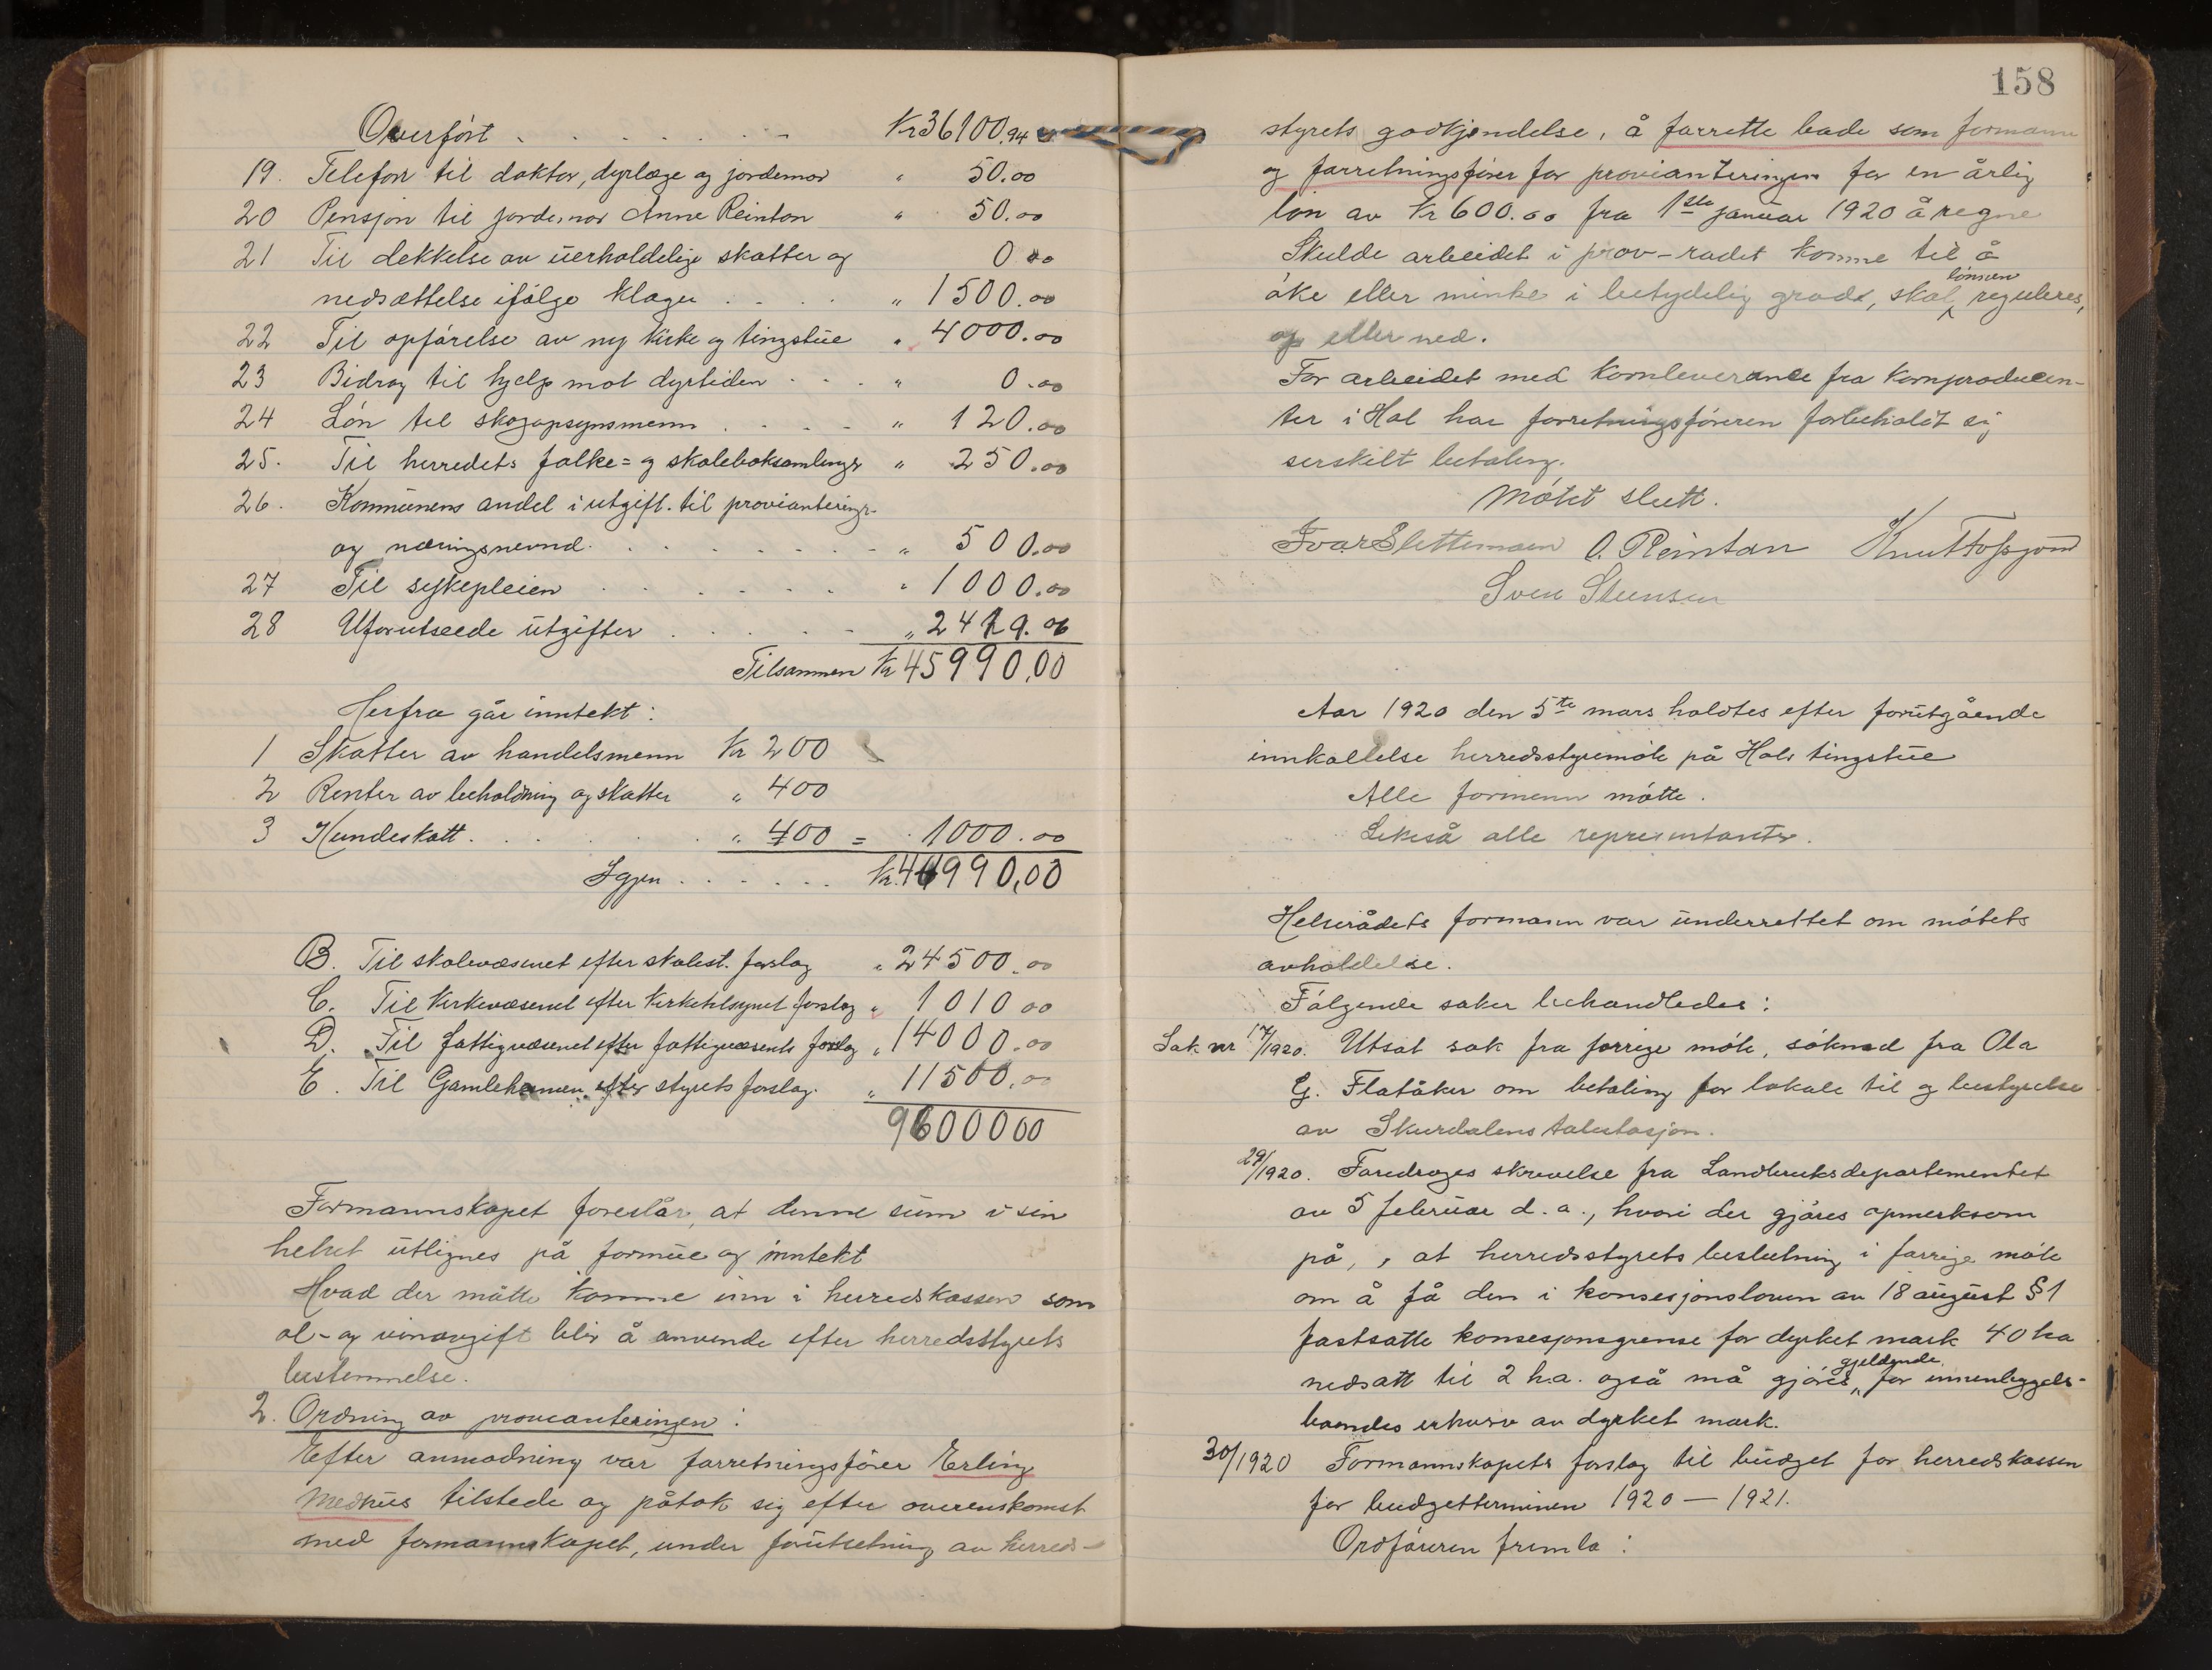 Overført . . . . . . . Kr 36100.94
19. Telefon til doktor, dyrlæge og jordemor " 50.00
20 Pensjon til jordemor Anne Reinton " 50.00
21 Til dekkelse av uerholdelige skatter og 0 00
nedsættelse ifølge klager . . . . " 1500.00
22 Til opførelse av ny kirke og tingstue " 4000.00
23 Bidrag til hjelp mot dyrtiden . . . " 0.00
24 Løn til skogopsynsmenn . . . . " 120.00
25. Til herredets folke= og skoleboksamlinger " 250.00
26. Kommunens andel i utgift. til provianterings-
og næringsnevnd. . . . . . . . . " 500.00
27 Til sykepleien . . . . . . " 1000.00
28 Uforutseede utgifter . . . . . " 2419.06
Tilsammen Kr 45990,00
Herfra går inntekt:
1 Skatter av handelsmenn Kr 200
2 Renter av beholdning og skatter " 400
3 Hundeskatt . . . . . " 400 = . 1000.00
Igjen . . . . . . Kr. 44990,00
B. Til skolevæsenet efter skolest. forslag " 24500.00
C. Til Kirkevæsenet efter Kirketilsynet forslag " 1010 00
D. Til fattigvæsenet efter fattigvæsents forslag " 14000.00
E. Til Gamlehemen efter styrets forslag. " 11500.00
96000 00
Formannskapet foreslår, at denne sum i sin
helhet utlignes på formue og inntekt
Hvad der måtte komme inn i herredskassen som
øl- og vinavgift blir å anvende efter herredsstyrets
bestemmelse.
2. Ordning av provianteringen:
Efter anmodning var forretningsfører Erling
Medhus tilstede og påtok sig efter overenskomst
med formannskapet, under forutsetning av herreds-
158
styrets godkjendelse, å forrette både som formann
og forretningsfører for provianteringen for en årlig
løn av Kr 600.00 fra 1ste januar 1920 å regne
Skulde arbeidet i prov-rådet komme til å
lønnen
øke eller minke i betydelig grad, skal reguleres,
op eller ned.
For arbeidet med kornleveranse fra kornproducen-
ter i Hol har forretningsføreren forbeholdt sig
serskilt betaling.
Møtet slutt.
Ivar Slettemoen O. Reinton Knut Fossgård
Sven Stensen
Aar 1920 den 5te mars holdtes efter forutgående
innkallelse herredsstyremøte på Hols tingstue
Alle formenn møtte.
Likeså alle representanter.
Helserådets formann var underrettet om møtets
avholdelse.
Følgende saker behandledes:
Sak nr 17/1920. Utsat sak fra forrige møte, søknad fra Ola
G. Flatåker om betaling for lokale til og bestyrelse
av Skurdalens talestasjon.
29/1920. Foredroges skrivelse fra Landbruksdepartementet
av 5 februar d. a., hvori der gjøres opmerksom
på, at herredsstyrets beslutning i forrige møte
om å få den i konsesjonsloven av 18 august § 1
fastsatte konsesjonsgrense for dyrket mark 40 ha
gjeldende
nedsatt til 2 h.a. også må gjøres for innenbygds-
boendes erhverv av dyrket mark.
30/1920 Formannskapets forslag til budget for herredskassen
for budgetterminen 1920 — 1921.
Ordføreren fremla: